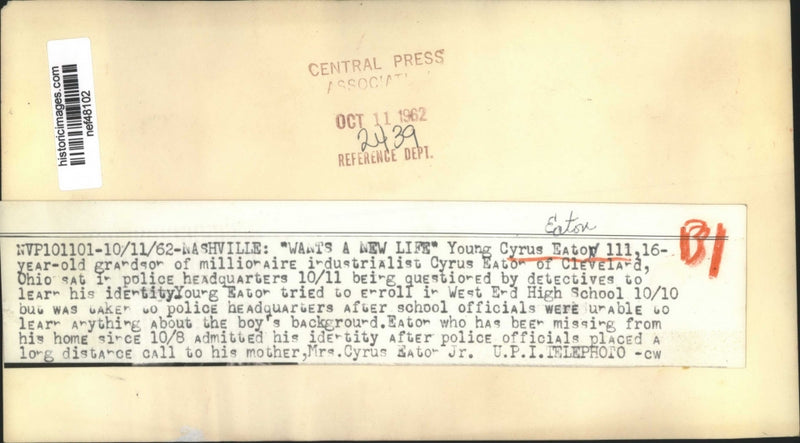 historicimages.com
nef48102
CENTRAL PRESS
ASSOCIATI
OCT 11 1962
2439
REFERENCE DEPT.
Eaton
B1
NVP101101-10/11/62-NASHVILLE: "WANTS A NEW LIFE" Young Cyrus Eaton 111,16-
year-old grandson of millionaire industrialist Cyrus Eaton of Cleveland,
Ohio sat in police headquarters 10/11 being questioned by detectives to
learn his identity.Young Eaton tried to enroll in West End High School 10/10
but was taken to police headquarters after school officials were unable to
learn anything about the boy's background.Eaton who has been missing from
his home since 10/8 admitted his identity after police officials placed a
long distance call to his mother,Mrs.Cyrus Eaton Jr. U.P.I.TELEPHOTO -cw